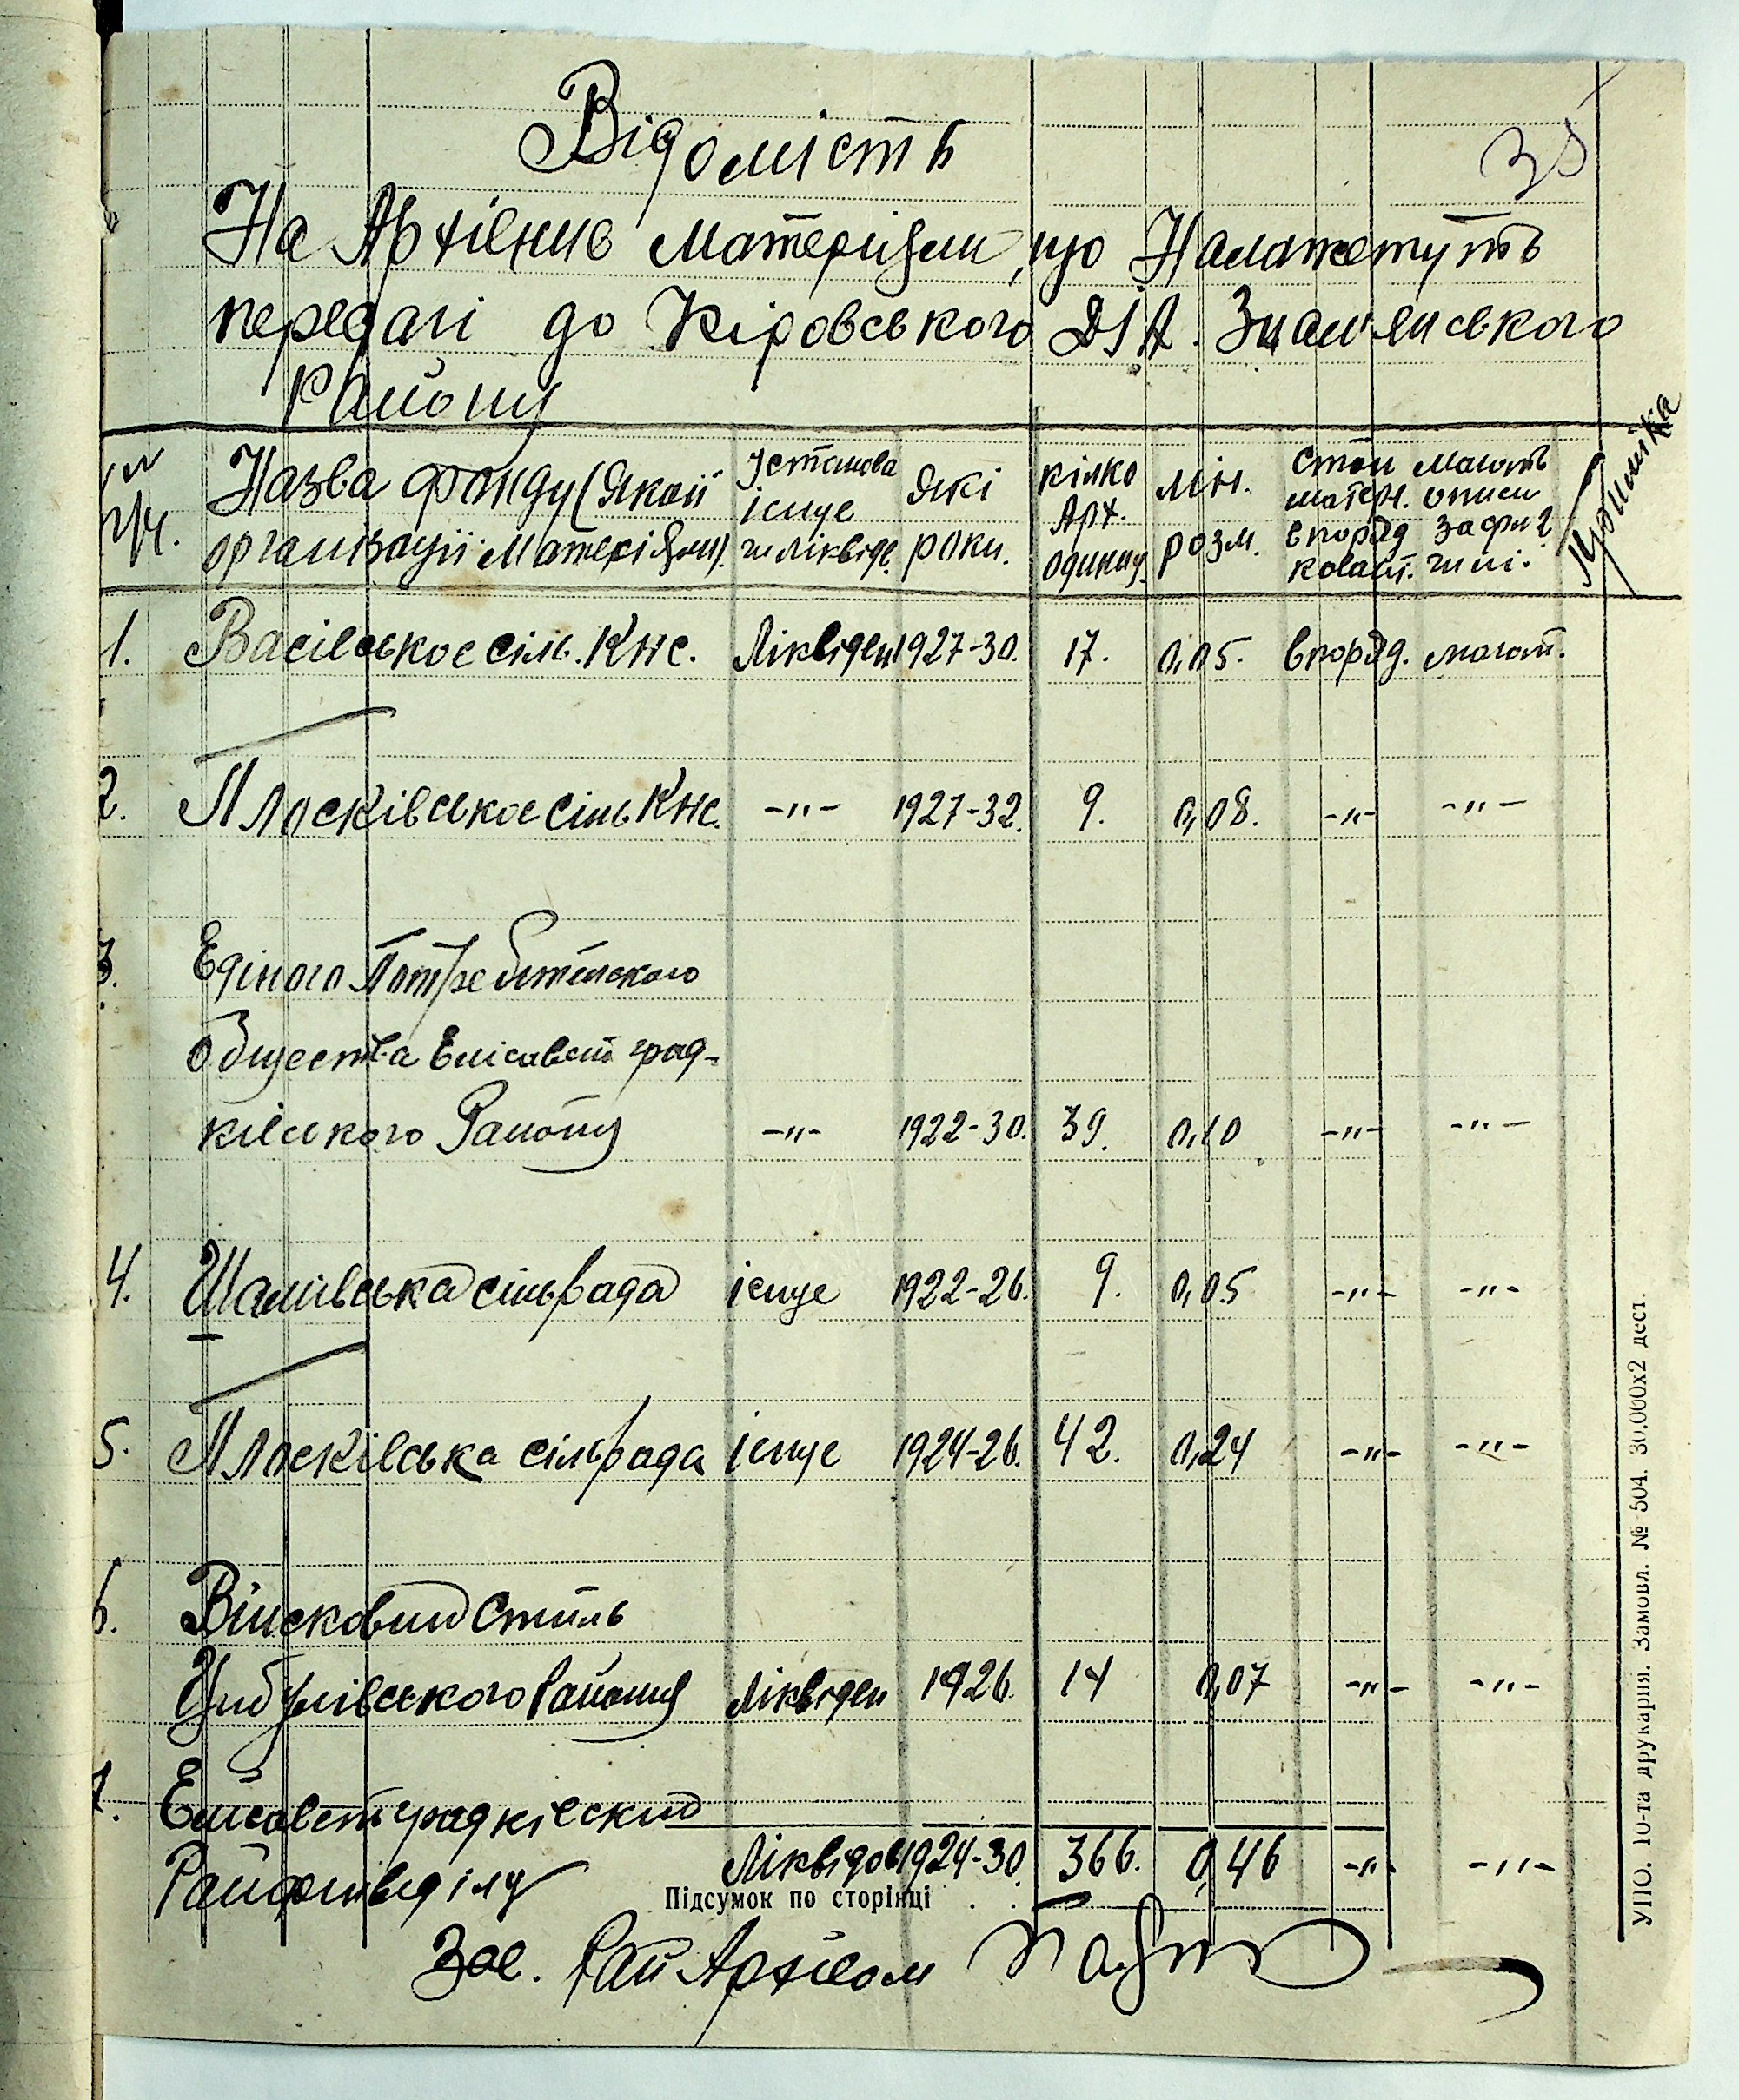 Відомість
35
На Архівние Матеріяли, що Належетуть
передачі до Кіровського ДІА. Знам'янського
Району
Назва фонду (якої організації матеріяли). Установа існує чи ліквід. Які роки. кілко Арх. одиниц. лін. розм. стан матер. впоряд коват. мають описи за ф№2 чи ні. Примітка
1. Васівськое сіль. КНС. Ліквіден 1927-30. 17. 0,05. впоряд. мають.
2. Плосківськое сіль КНС. -"- 1927-32. 9. 0,08. -"- -"-
3. Едіного Потребительского
Общества Елісавет град-
ківского Району -"- 1922-30. 39. 0,10 -"- -"-
4. Шамівська сільрада існує 1922-26. 9. 0,05 -"- -"-
5. Плосківська сільрада існує 1924-26. 42. 0,24 -"- -"-
6. Військовий Стиль
Цибулівського Району Ліквіден 1926. 14 0,07 -"- -"-
7. Елісаветградківский
Райфінвиділу Ліквідов 1924-30 366. 0,46 -"- -"-
Підсумок по сторінці
Зав. Рай Архівом
УПО. 10-та друкарня. Замовл. № 504. 30.000х2 дест.